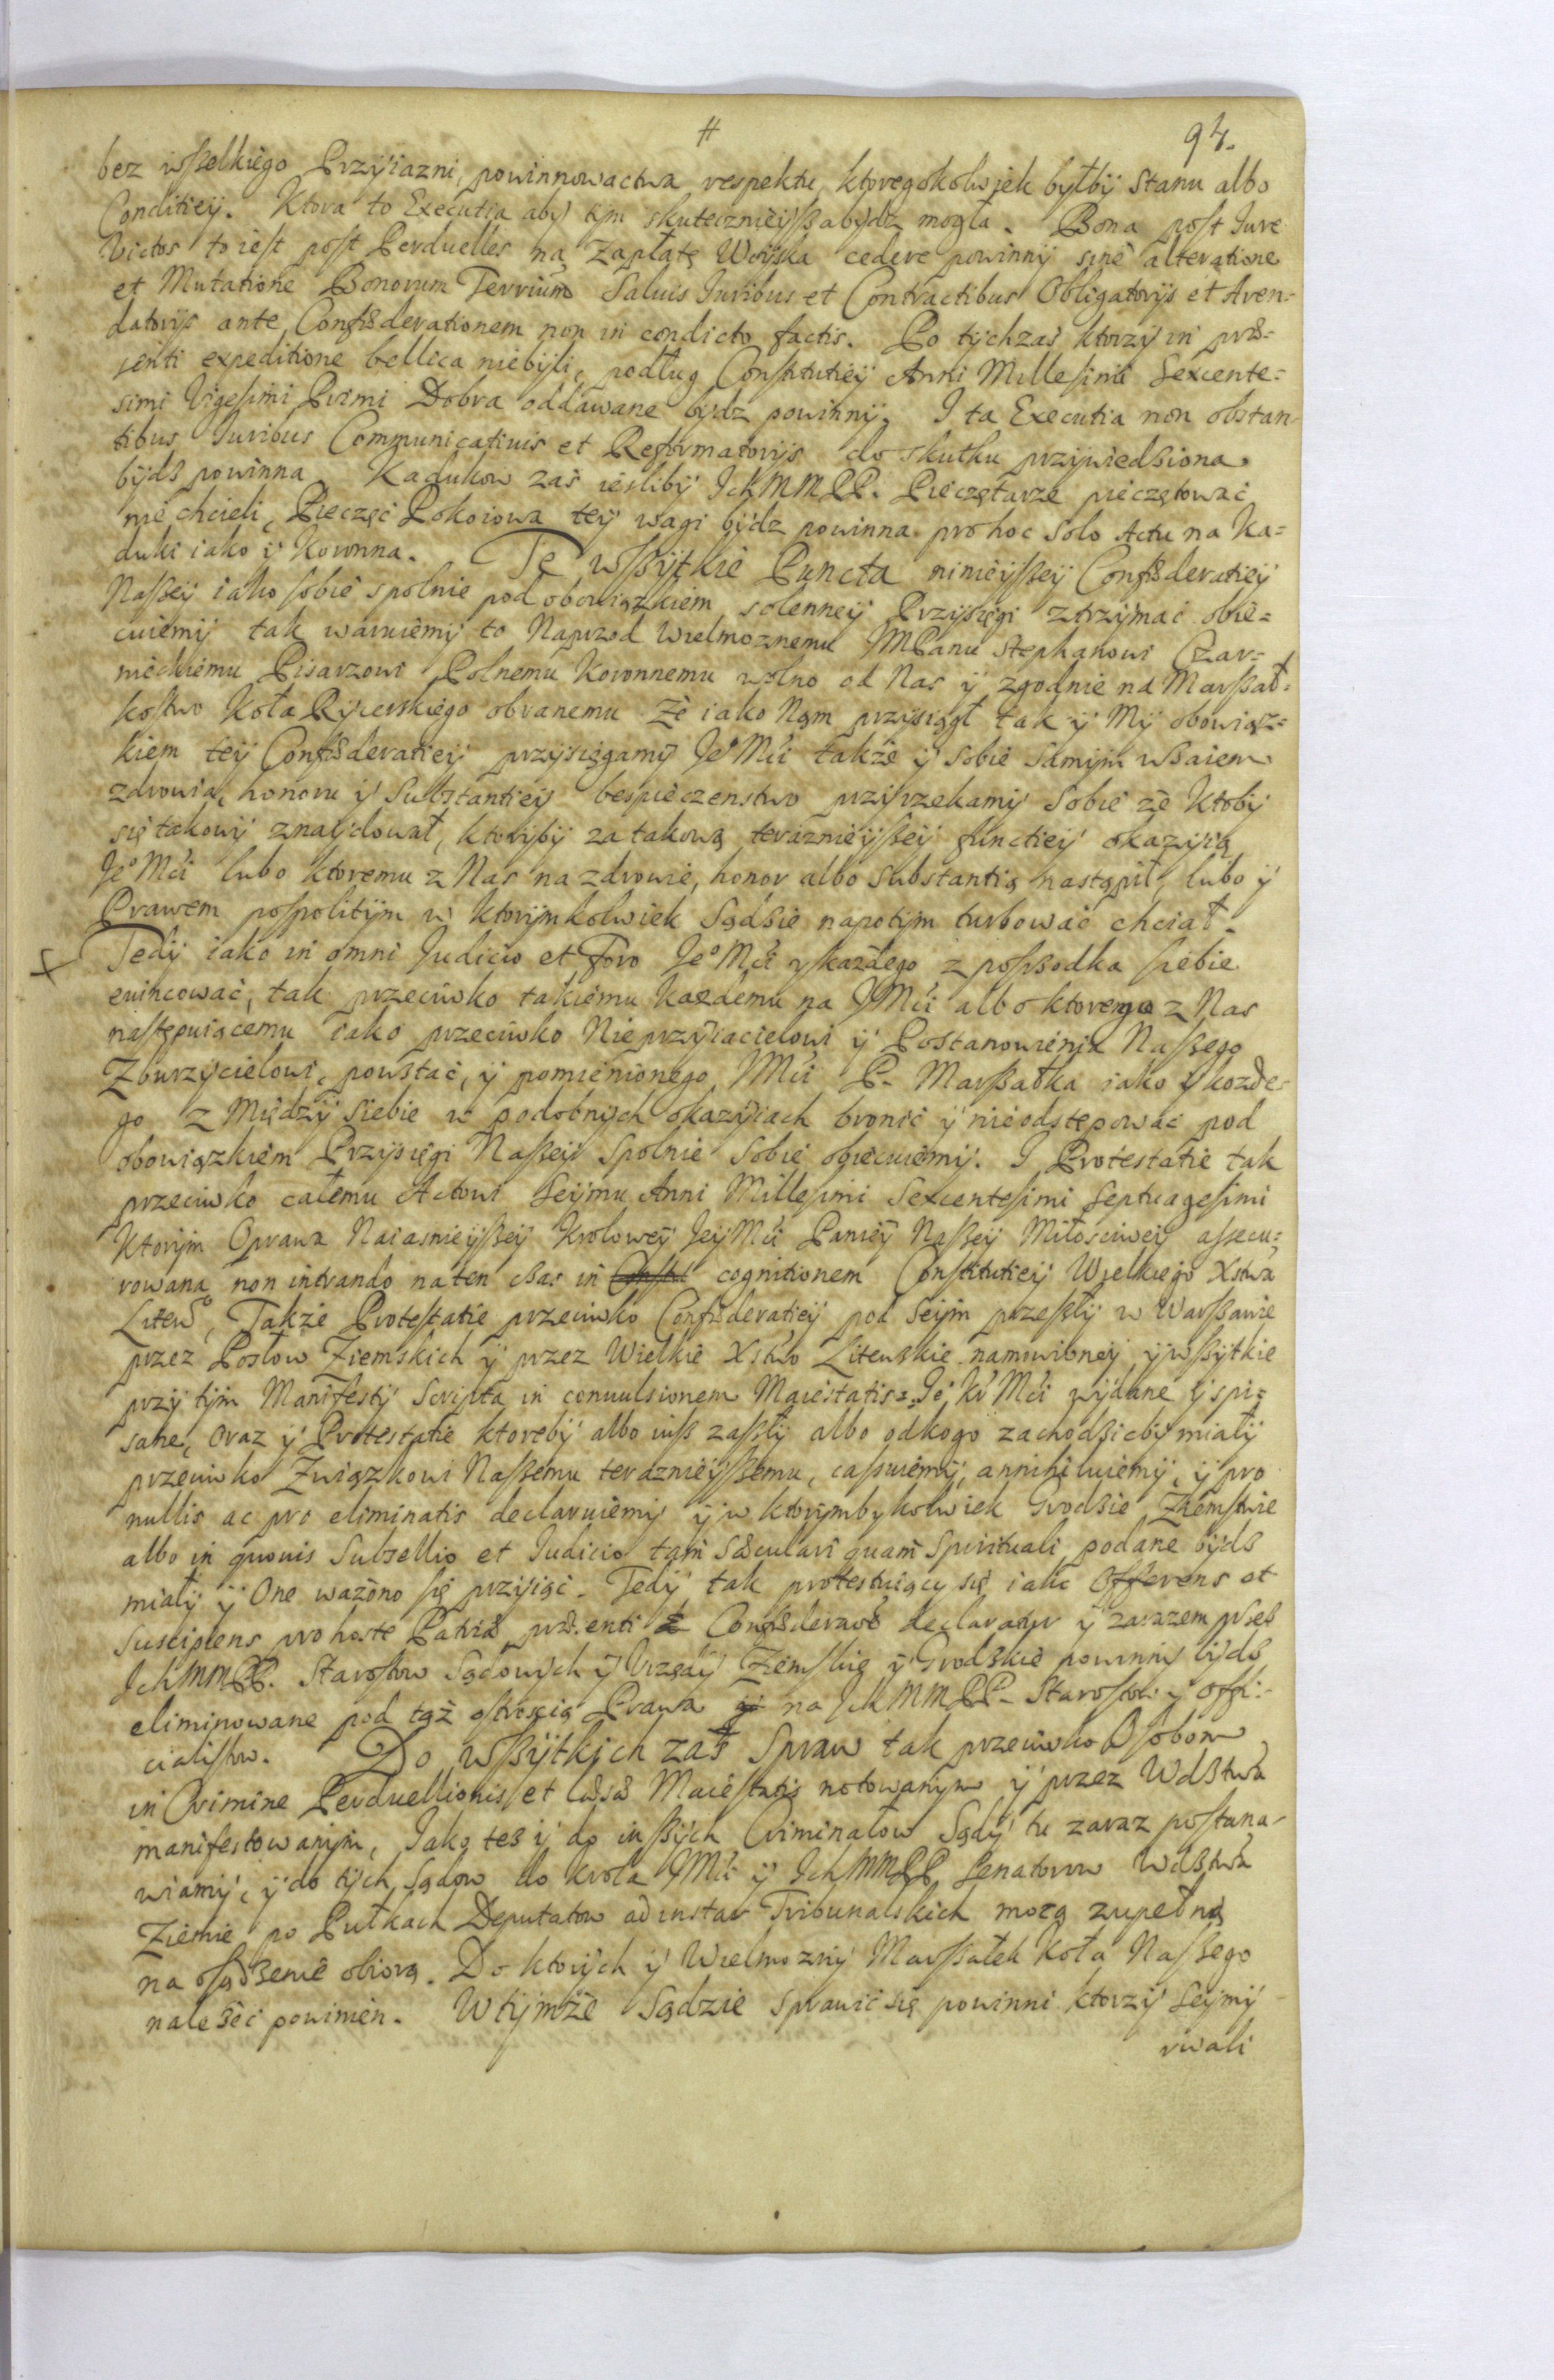 #
94.
bez wßelkiego Przyiazni, powinnowactwa respektu, ktoregokolwiek byłby Stanu albo
Conditiey. Ktora to Executia aby tym skutecznieyßa bydz mogła. Bona post Iure
Victos to iest post Perduelles na Zapłatę Woyska cedere powinny sine alteratione
et Mutatione Bonorum Terrium Saluis Iuribus et Contractibus Obligatorys et Aren-
datorys ante Confæderationem non in condicto factis. Po tychzas ktorzy in præ-
senti expeditione bellica niebyli, podług Constitutiey Anni Millesimi Sexcente=
simi Vigesimi Primi Dobra oddawane bydz powinny. I ta Executia non obstan-
tibus Iuribus Communicatiuis et Reformatorys do skutku przywiedziona
bydz powinna. Kadukow zas iesliby Ich MM PP. Pieczętarze pieczętować
nie chcieli, Pieczęć Pokoiowa tey wagi bydz powinna pro hoc solo Actu na Ka=
duki iako y Koronna. Te wßytkie Puncta ninieyßey Confæderatiey
Naßey iako sobie spolnie pod obowiązkiem solenney Przysięgi ztrzymać obie=
cuiemy tak waruiemy to Naprzod Wielmoznemu JMPanu Stephanowi Czar=
nieckiemu Pisarzowi Polnemu Koronnemu wolno od Nas y zgodnie na Marßał=
kostwo Koła Rycerskiego obranemu Ze iako Nam przysiągł tak y My obowiąz=
kiem tey Confæderatiey przysięgamy Jeº Mći także y Sobie samym wzaiem
zdrowia, honoru y Substantiey bespieczenstwo przyrzekamy Sobie że Ktoby
się takowy znaydował, ktoryby za takową teraznieyßey functiey okazyią
Jeº Mći lubo ktoremu z Nas na zdrowie, honor albo Substantią nastąpił, lubo y
Prawem pospolitym w ktorymkolwiek Sądzie napotym turbować chciał.
Tedy iako in omni Iudicio et Foro Jeº Mći y każdego z poßrodka siebie
euincować, tak przeciwko takiemu Kazdemu na JMći albo ktorego z Nas
następuiącemu iako przeciwko Nieprzyiacielowi y Postanowienia Naßego
Zburzycielowi, powstać, y pomienionego JMći P. Marßałka iako y kozde-
go z Między siebie w podobnych okazyiach bronić y nieodstępować pod
obowiązkiem Przysięgi Naßey Spolnie Sobie obiecuiemy. I Protestatie tak
przeciwko całemu Actowi Seymu Anni Millesimi Sexcentesimi Septuagesimi
Ktorym Oprawa Naiasnieyßey Krolowey Jey Mći Paniey Naßey Miłościwey assecu=
rowana non intrando na ten czas in cognitionem Constitutiey Wielkiego Xstwa
Litewº, Także Protestatie przeciwko Confæderatiey pod Seym przeszły w Warßawie
przez Posłow Ziemskich y przez Wielkie Xstwo Litewskie namowioney y wßytkie
przy tym Manifesty Scripta in conuulsionem Maiestatis Jeº Kr Mći wydane y spi=
sane, oraz y Protestatie ktoreby albo iuß zaßły albo odkogo zachodzicby miały
przeciwko Związkowi Naßemu teraznieyßemu, cassuiemy, annihiluiemy, y pro
nullis ac pro eliminatis declaruiemy y w ktorymbykolwiek Grodzie Ziemstwie
albo in quouis Subsellio et Iudicio tam Sæculari quam Spirituali podane bydz
miały y One ważono się przyiąć. Tedy tak protestuiący się iako Offerens et
Suscipiens pro hoste Patriæ præsenti Confæderatoe declaratur y zarazem przez
Ich MM PP. Starostow Sądowych y Urzędy Ziemskie y Grodzkie powinny bydz
eliminowane pod tąż ostrością Prawa na Ich MM PP. Starostow y Offi-
cialistow. Do wßytkich zaś Spraw tak przeciwko Osobom
in Crimine Perduellionis et læsæ Maiestatis notowanym y przez Wdztwa
manifestowanym, Iako tez y do inßych Criminałow Sądy tu zaraz postana-
wiamy, y do tych Sądow do Krola JMći y Ich MM PP Senatorow Wdztwa
Ziemie po Pułkach Deputatow ad instar Tribunalskich mocą zupełną
na osądzenie obiorą. Do ktorych y Wielmozny Marßałek Koła Naßego
należeć powinien. W tymże Sądzie sprawić się powinni ktorzy Seymy
rwali